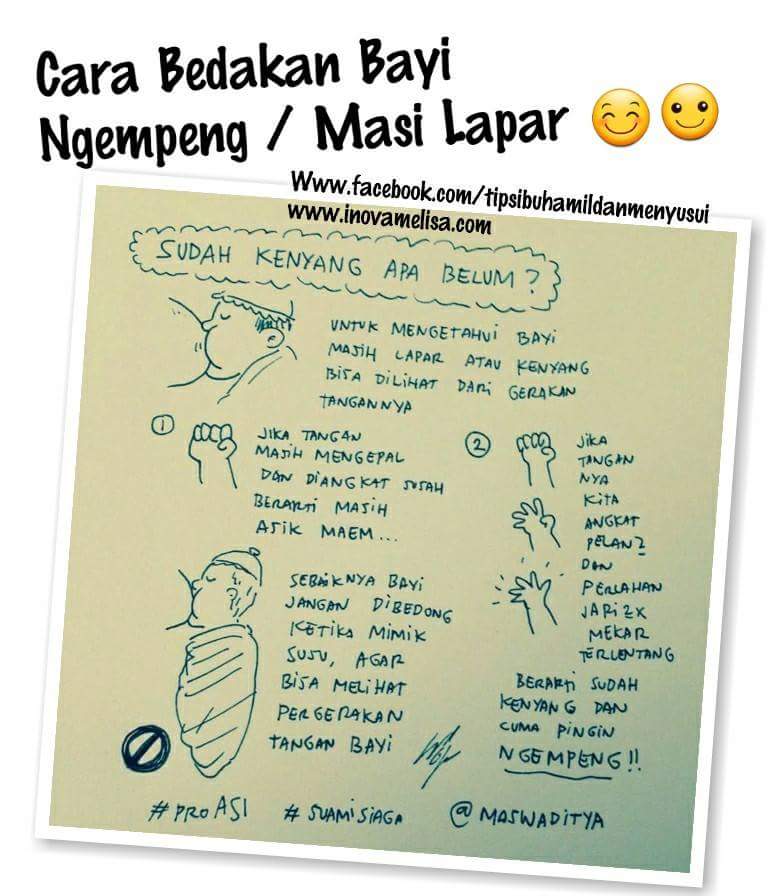 Cara Bedakan Bayi
Ngempeng / Masi Lapar
Www.facebook.com/tipsibuhamildanmenyusui
www.inovamelisa.com
SUDAH KENYANG APA BELUM?
UNTUK MENGETAHUI BAYI
MASIH LAPAR ATAU KENYANG
BISA DILIHAT DARI GERAKAN
TANGANNYA
1
JIKA TANGAN
MASIH MENGEPAL
DAN DIANGKAT SUSAH
BERARTI MASIH
ASIK MAEM...
2
JIKA
TANGAN
NYA
KITA
ANGKAT
PELAN2
DAN
PERLAHAN
JARI2X
MEKAR
TERLENTANG
BERARTI SUDAH
KENYANG DAN
CUMA PINGIN
NGEMPENG!!
SEBAIKNYA BAYI
JANGAN DIBEDONG
KETIKA MIMIK
SUSU, AGAR
BISA MELIHAT
PERGERAKAN
TANGAN BAYI
#PROASI #SUAMISIAGA @MASWADITYA